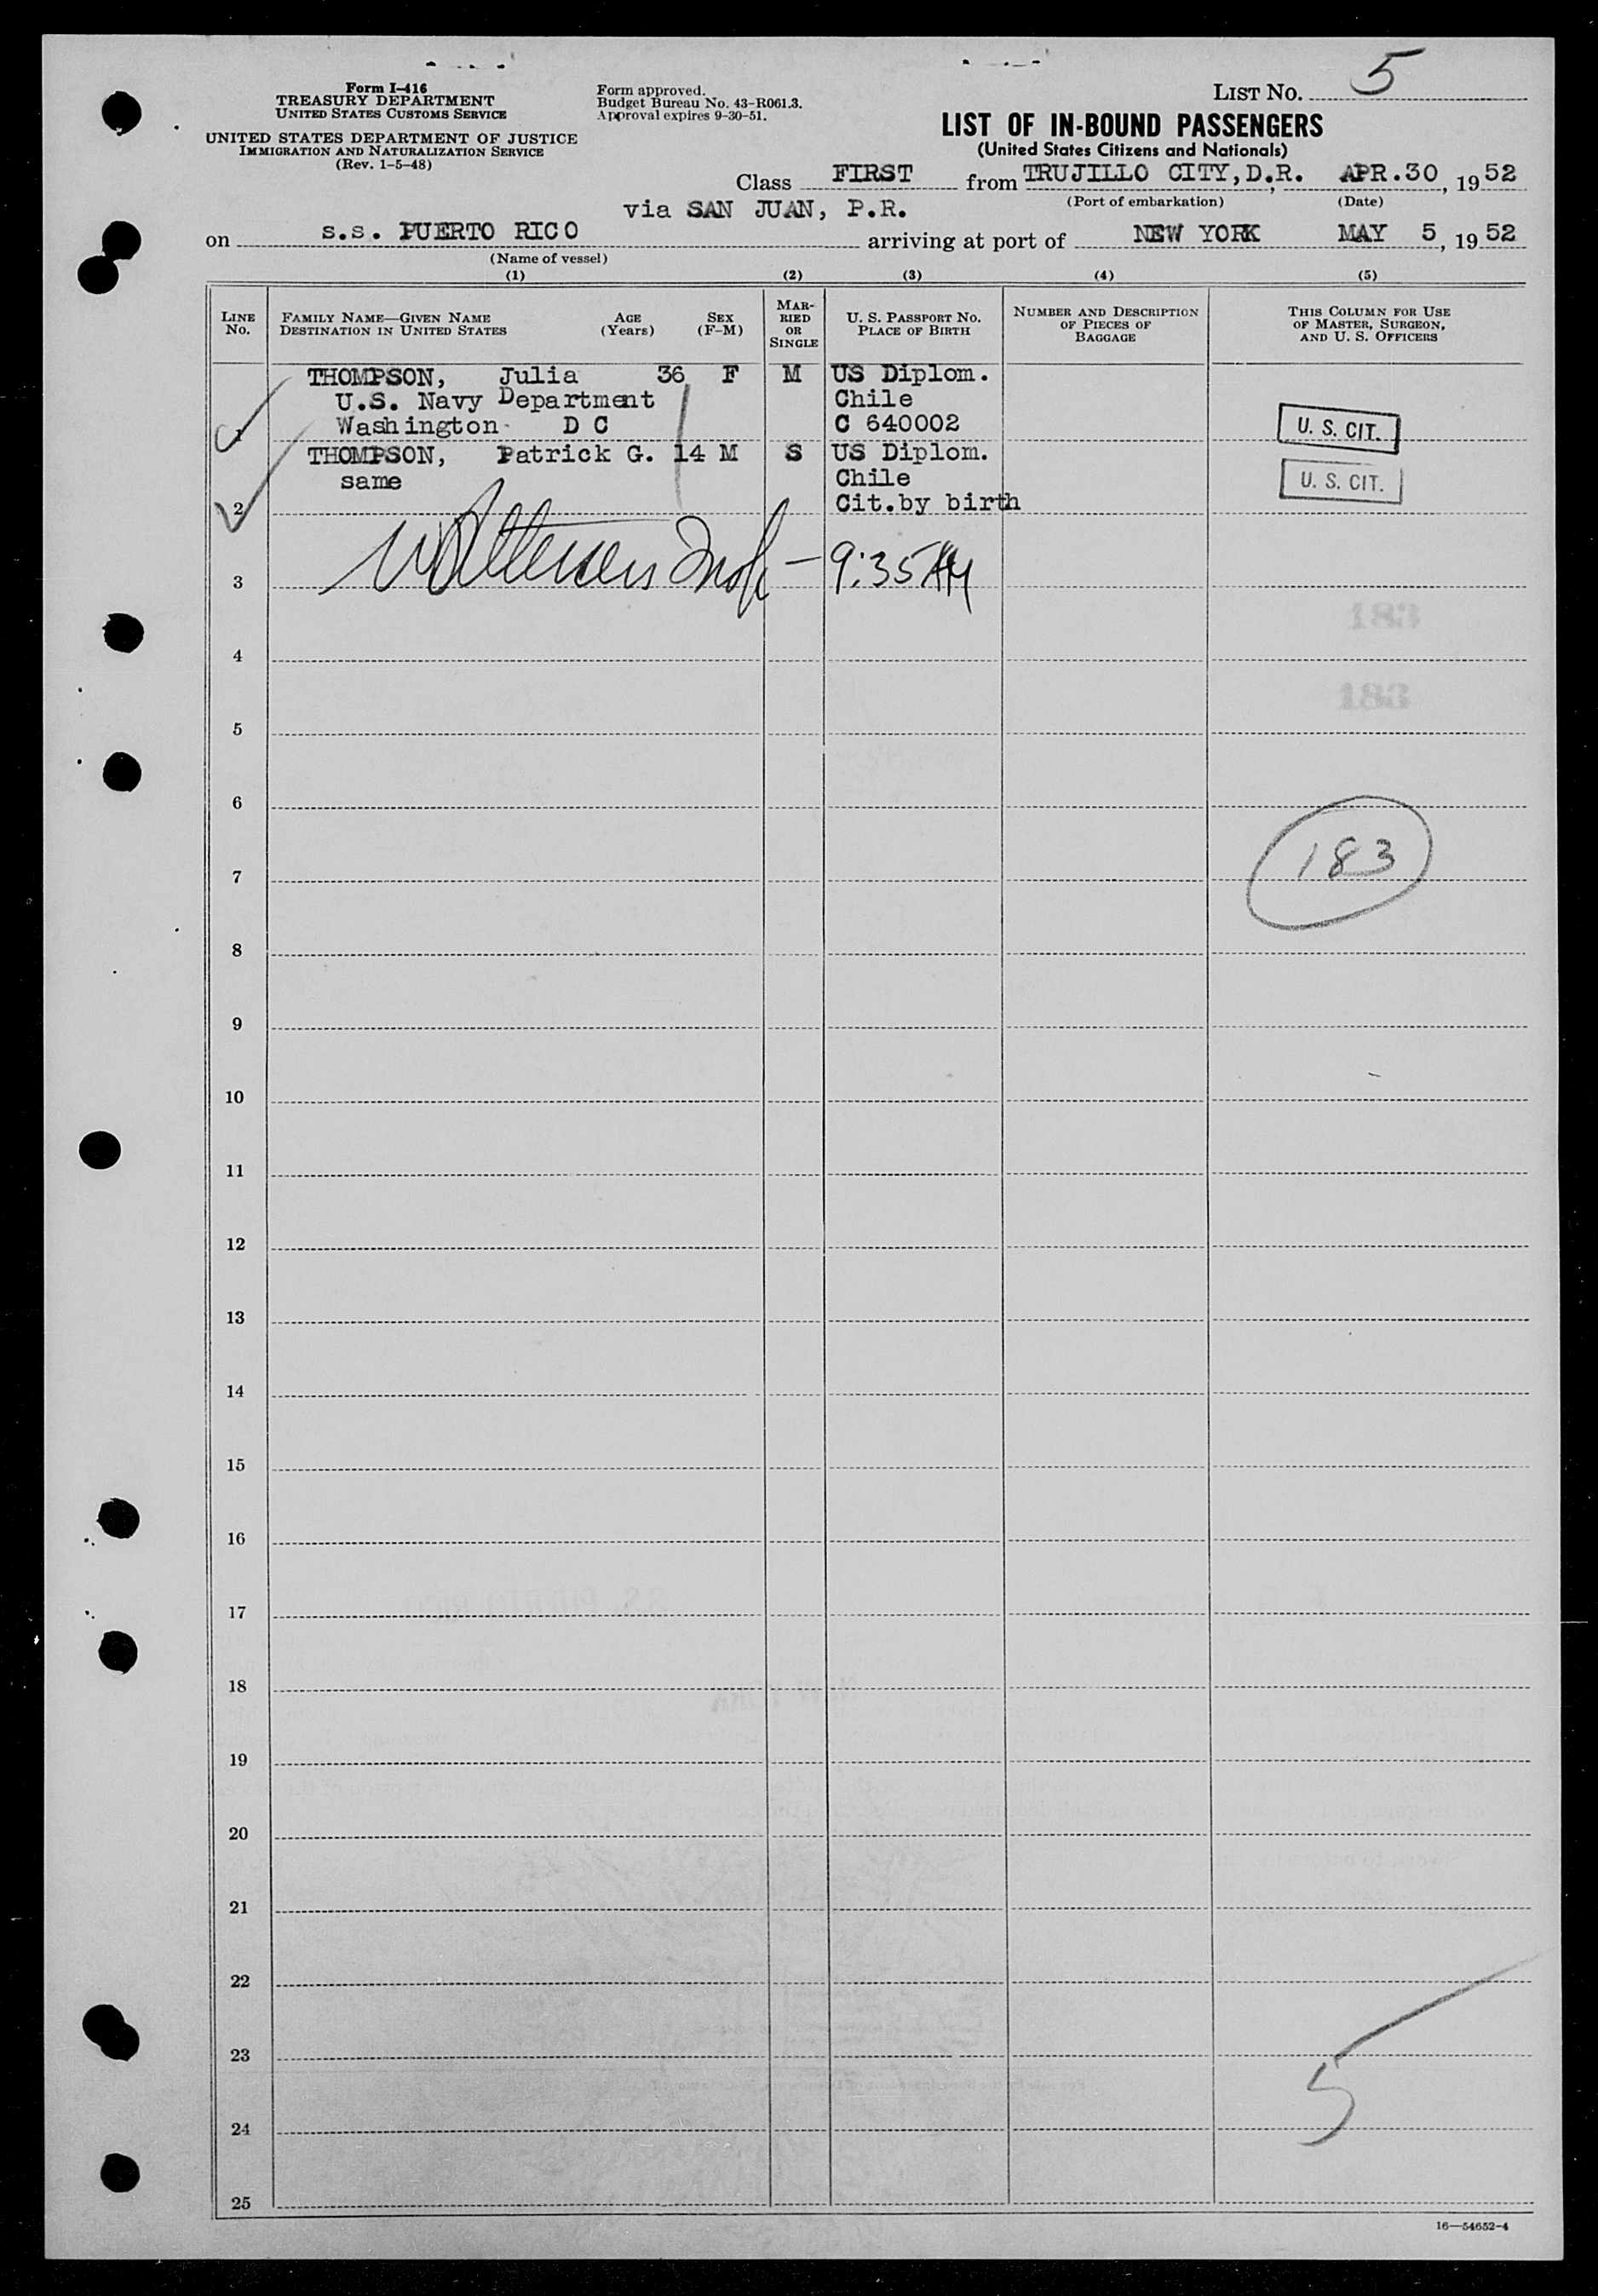 List No. 5
Form I-416
TREASURY DEPARTMENT
United States Customs Service
UNITED STATES DEPARTMENT OF JUSTICE
Immigration and Naturalization Service
(Rev. 1-5-48)
Form approved.
Budget Bureau No. 43-R061.3.
Approval expires 9-30-51.
LIST OF IN-BOUND PASSENGERS
(United States Citizens and Nationals)
Class FIRST from TRUJILLO CITY, D.R. APR.30, 1952
(Port of embarkation) (Date)
via SAN JUAN, P.R.
on s.s. PUERTO RICO arriving at port of NEW YORK MAY 5, 1952
(Name of vessel)
(1) (2) (3) (4) (5)
Line No. Family Name—Given Name Destination in United States Age (Years) Sex (F-M) Married or Single U. S. Passport No. Place of Birth Number and Description of Pieces of Baggage This Column for Use of Master, Surgeon, and U. S. Officers
THOMPSON, Julia 36 F M US Diplom.
U.S. Navy Department Chile
Washington D C C 640002 U. S. CIT.
THOMPSON, Patrick G. 14 M S US Diplom.
same Chile U. S. CIT.
2 Cit.by birth
3 9:35 AM
183
4
183
5
6
183
7
8
9
10
11
12
13
14
15
16
17
18
19
20
21
22
23
5
24
25
16—54652-4